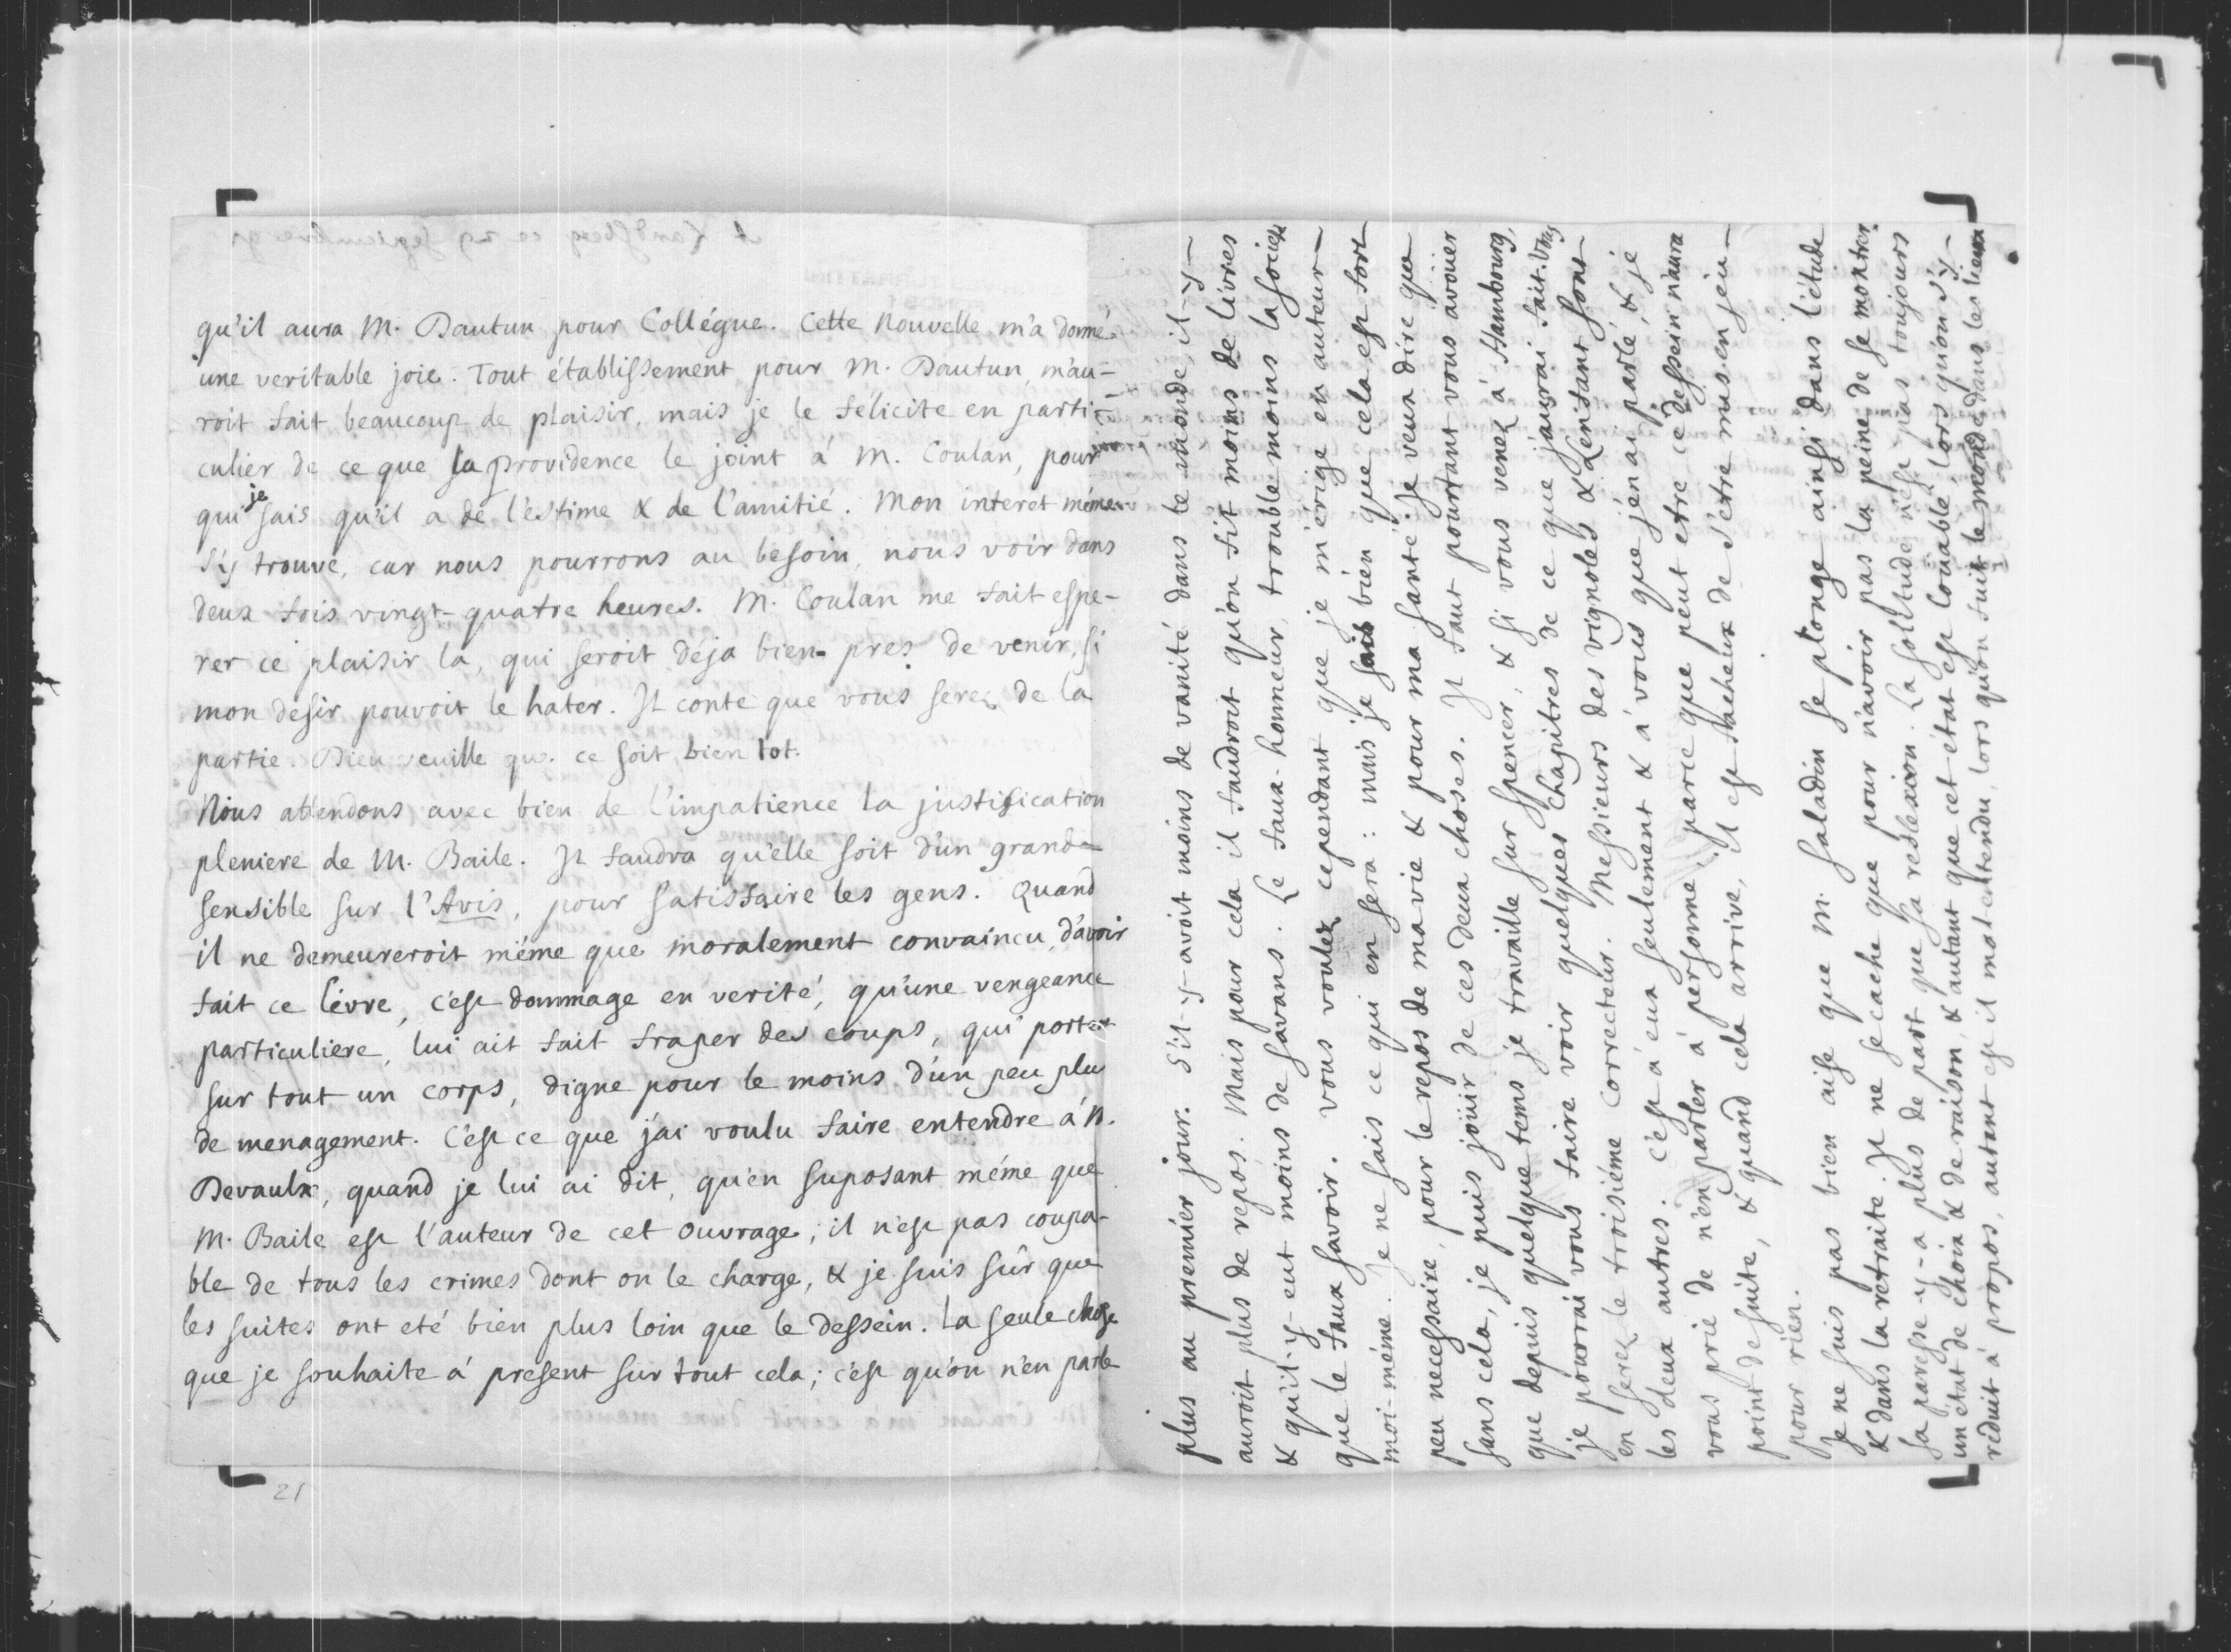 qu'il aura M. Dautun pour Collégue. Cette Nouvelle m'a donné
une veritable joie. Tout établissement pour M. Dautun, m'au-
roit fait beaucoup de plaisir, mais je le félicite en parti-
culier de ce que la providence le joint á M. Coulan, pour
qui je sais qu'il a de l'estime & de l'amitié. Mon interet même
s'y trouve, car nous pourrons au besoin, nous voir dans
deux fois vingt-quatre heures. M. Coulan me fait espe-
rer ce plaisir la, qui seroit deja bien pres de venir, si
mon desir pouvoit le hater. Il conte que vous serez de la
partie. Dieu veuille que ce soit bien tot.
Nous attendons avec bien de l'impatience la justification
pleniere de M. Baile. Il faudra qu'elle soit d'un grand
sensible sur l'Avis, pour satisfaire les gens. Quand
il ne demeureroit même que moralement convaincu, d'avoir
fait ce livre, c'est dommage en verité, qu'une vengeance
particuliere, lui ait fait fraper des coups, qui portent
sur tout un corps, digne pour le moins d'un peu plus
de menagement. C'est ce que j'ai voulu faire entendre á M.
Devaulx, quand je lui ai dit, qu'en suposant même que
M. Baile est l'auteur de cet ouvrage, il n'est pas coupa-
ble de tous les crimes dont on le charge, & je suis sûr que
les suites ont eté bien plus loin que le dessein. La seule chose
que je souhaite á present sur tout cela; c'est qu'on n'en parle
21
plus au premier jour. S'il-y-avoit moins de vanité dans le monde, il-y-
auroit plus de repos. Mais pour cela il faudroit qu'on fit moins de livres
& qu'il-y-eut moins de savans. Le faux-honneur, trouble moins la societé
que le faux savoir. Vous voulez cependant que je m'érige en auteur
moi-même. Je ne sais ce qui en sera: mais je sais bien que cela est fort
peu necessaire, pour le repos de ma vie & pour ma santé: je veux dire que
sans cela, je puis joüir de ces deux choses. Il faut pourtant vous avoüer
que depuis quelque tems je travaille sur Spencer, & si vous venez á Hambourg,
je pourrai vous faire voir quelques chapitres de ce que j'aurai fait. Vous
en serez le troisiéme correcteur. Messieurs des Vignoles & Lenfant sont
les deux autres. C'est á eux seulement & á vous que j'en ai parlé, & je
vous prie de n'en parler á personne; parce que peut etre ce dessein n'aura
point de suite, & quand cela arrive, il est facheux de s'etre mis en jeu
pour rien.
Je ne suis pas bien aise que M. Saladin se plonge ainsi dans l'étude
& dans la retraite. Il ne se cache que pour n'avoir pas la peine de se montrer.
Sa paresse y-a plus de part que sa reflexion. La solitude n'est pas toujours
un état de choix & de raison, & autant que cet état est loüable, lors qu'on s'y
réduit á propos, autant est il mal entendu, lors qu'on fuit le monde dans les lieux